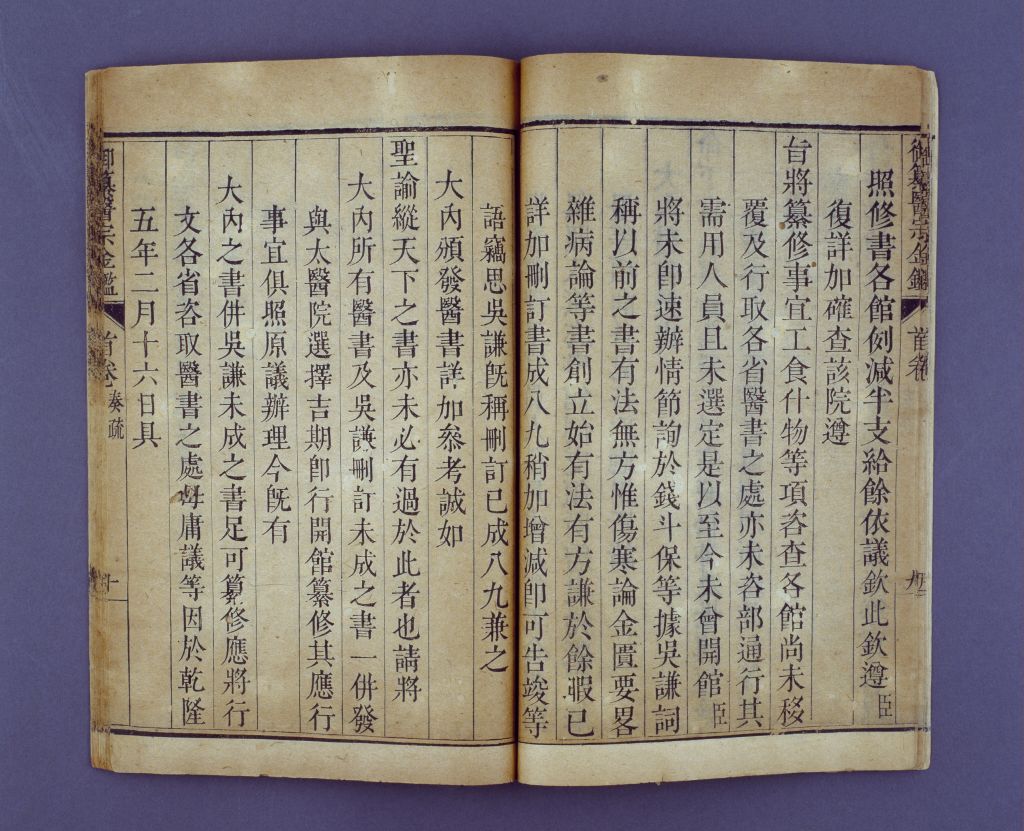 御纂醫宗金鑑
首卷
九
照修書各館例減半支給餘依議欽此欽遵臣
復詳加確查該院遵
旨將纂修事宜工食什物等項咨查各館尚未移
覆及行取各省醫書之處亦未咨部通行其
需用人員且未選定是以至今未曾開館臣
將未卽速辦情節詢於錢斗保等據吳謙詞
稱以前之書有法無方惟傷寒論金匱要畧
雜病論等書創立始有法有方謙於餘暇已
詳加刪訂書成八九稍加增減卽可告竣等
語竊思吳謙旣稱刪訂已成八九兼之
大內頒發醫書詳加叅考誠如
聖諭縱天下之書亦未必有過於此者也請將
大內所有醫書及吳謙刪訂未成之書一併發
與太醫院選擇吉期卽行開館纂修其應行
事宜俱照原議辦理今旣有
大內之書併吳謙未成之書足可纂修應將行
文各省咨取醫書之處毋庸議等因於乾隆
五年二月十六日具
御纂醫宗金鑑
首卷 奏疏
十